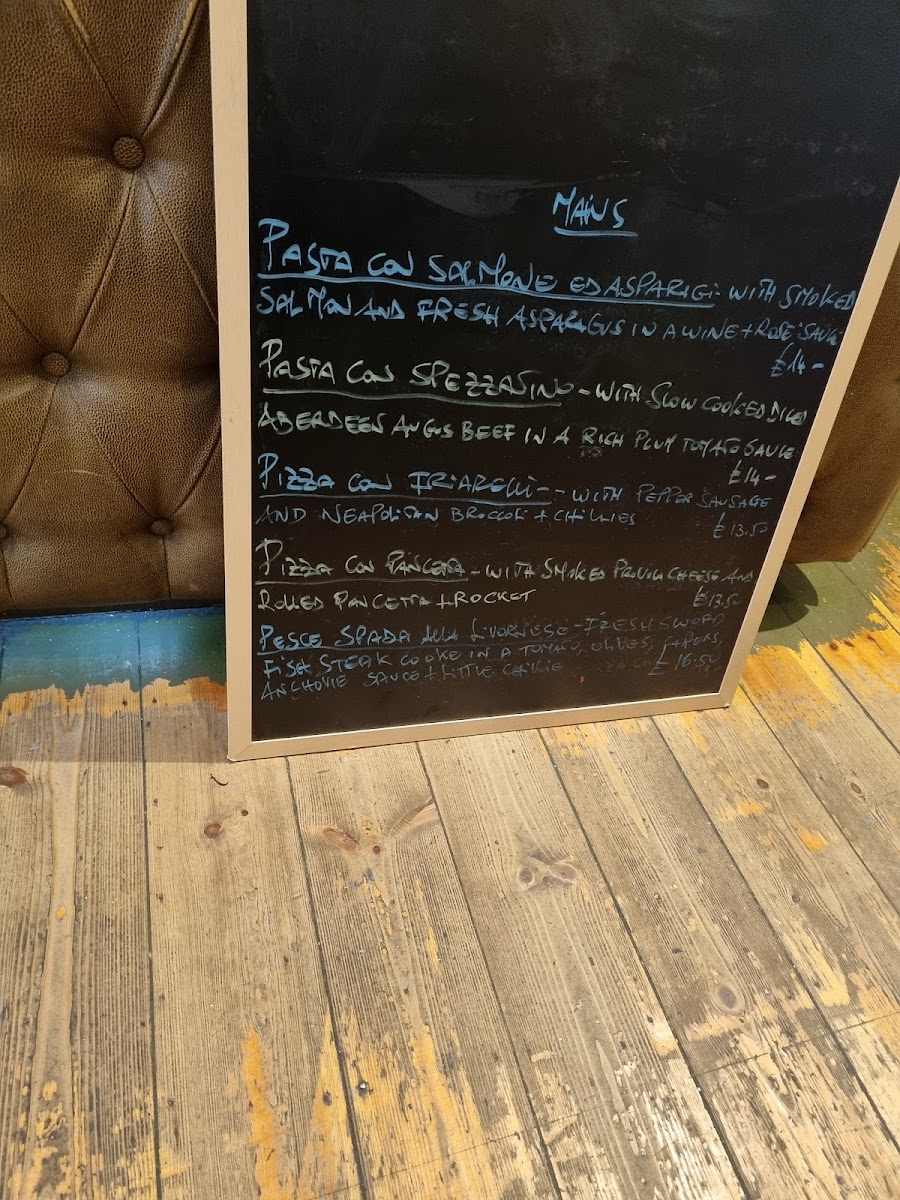 MAINS
PASTA CON SALMONE ED ASPARAGI - WITH SMOKED
SALMON AND FRESH ASPARAGUS IN A WINE + ROSE' SAUCE
£14-
PASTA CON SPEZZATINO - WITH SLOW COOKED DICED
ABERDEEN ANGUS BEEF IN A RICH PLUM TOMATO SAUCE
£14-
PIZZA CON FRIARELLI - - WITH PEPPER SAUSAGE
AND NEAPOLITAN BROCCOLI + CHILLIES £13.50
PIZZA CON PANCETTA - WITH SMOKED PROVOLA CHEESE AND
ROLLED PANCETTA + ROCKET £13.50
PESCE SPADA ALLA LIVORNESE - FRESH SWORD
FISH STEAK COOKE IN A TOMATO, OLIVES, CAPERS,
ANCHOVIE SAUCE + LITTLE CHILLIE £16.50